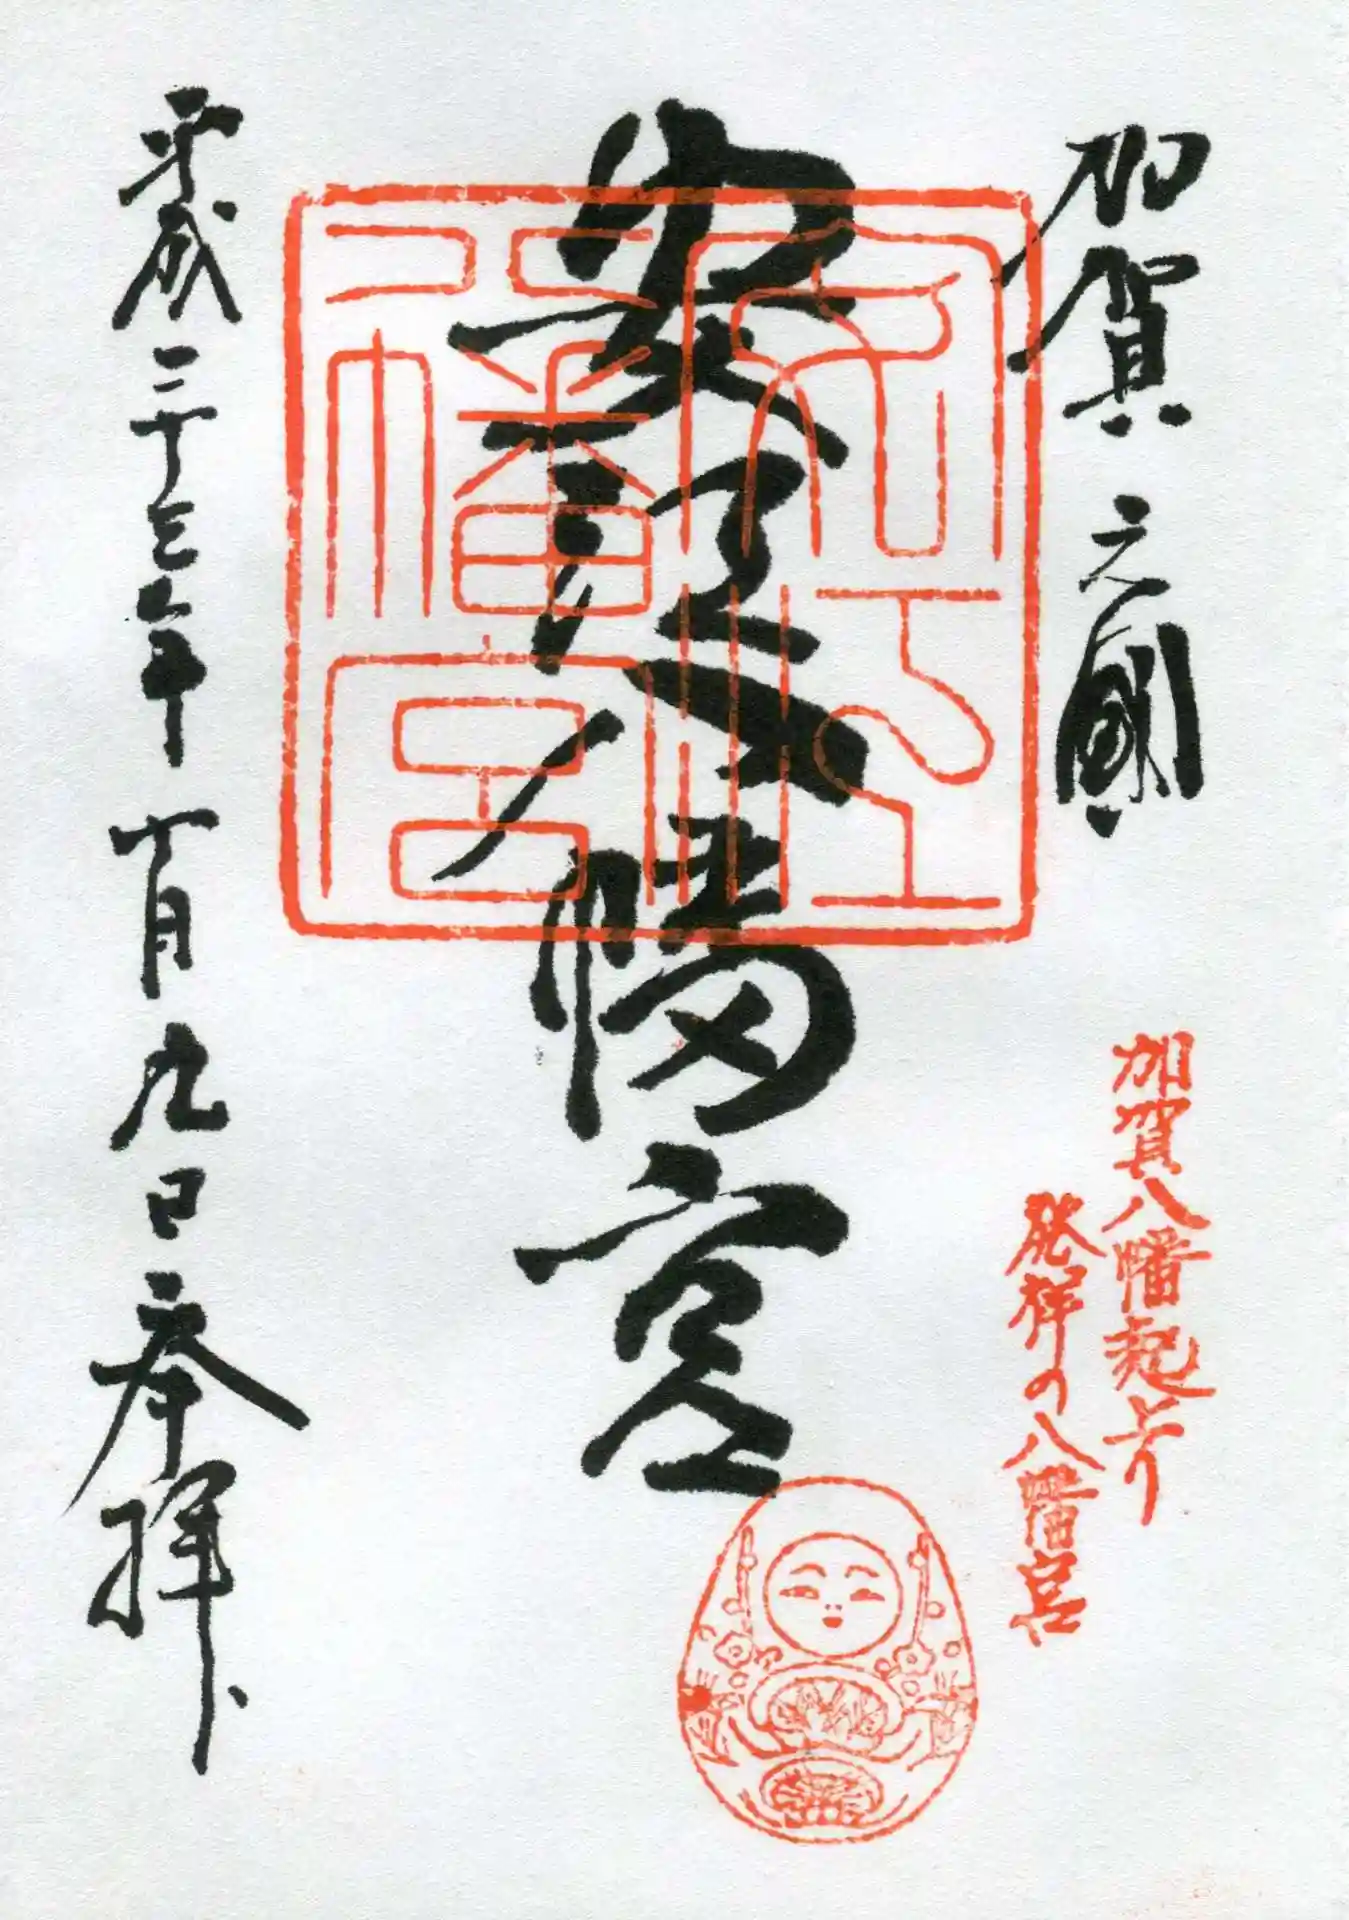 加賀之國
加賀八幡起上り
発祥の八幡宮
安江八幡宮
安江
八幡宮
平成二十三年十月九日奉拝